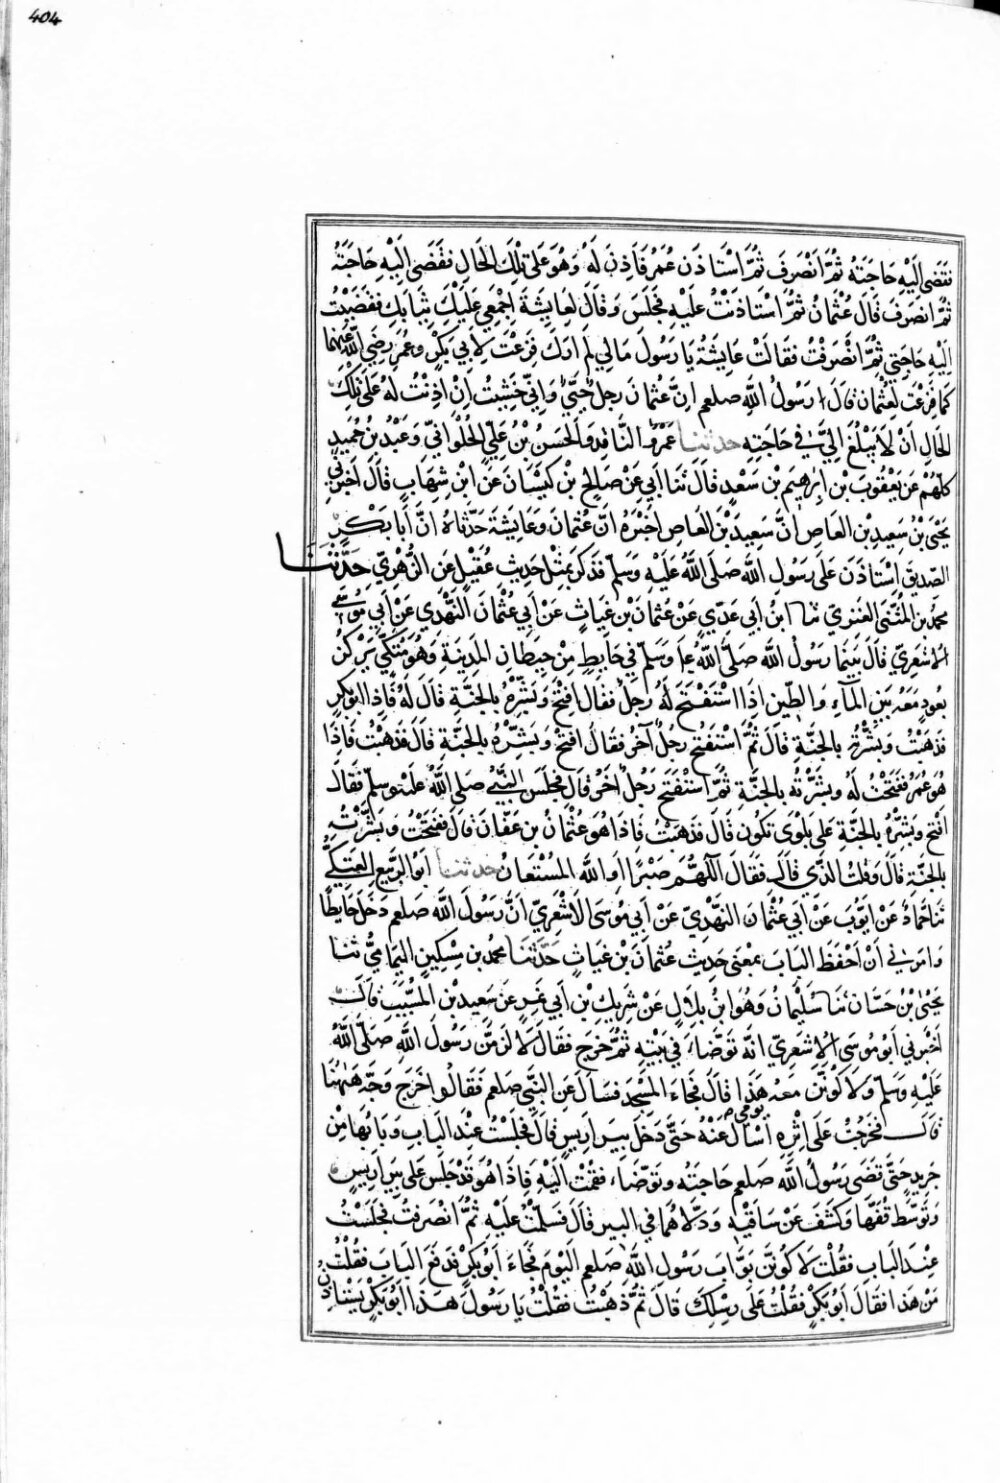 404
فقضى اليه حاجته ثم انصرف ثم استاذن عمر فاذن له وهو على تلك الحال فقضى اليه حاجته
ثم انصرف قال عثمان ثم استاذنت عليه فجلس وقال لعايشة اجمعي عليك ثيابك فقضيت
اليه حاجتي ثم انصرفت فقالت عايشة يا رسول مالي لم ارك فزعت لابي بكر وعمر رضي الله عنهما
كما فزعت لعثمان قال رسول الله صلعم ان عثمان رجل حيي واني خشيت ان اذنت له على تلك
الحال ان لا يبلغ الي في حاجته حدثنا عمرو الناقد والحسن بن علي الحلواني وعبد بن حميد
كلهم عن يعقوب بن ابرهيم بن سعد قال ثنا ابي عن صالح بن كيسان عن ابن شهاب قال اخبرني
يحيى بن سعيد بن العاص ان سعيد بن العاص اخبره ان عثمان وعايشة حدثاه ان ابا بكر
الصديق استاذن على رسول الله صلى الله عليه وسلم فذكر بمثل حديث عقيل عن الزهري حدثنا
محمد بن المثنى العنزي ثنا ابن ابي عدي عن عثمان بن غياث عن ابي عثمان النهدي عن ابي موسى
الاشعري قال بينما رسول الله صلى الله عليه وسلم في حايط من حيطان المدينة وهو متكي يركز
بعود معه بين الماء والطين اذا استفتح له رجل فقال افتح وبشره بالجنة قال له فاذا ابو بكر
فذهبت وبشرته بالجنة قال ثم استفتح رجل آخر فقال افتح وبشره بالجنة قال فذهبت فاذا
هو عمر ففتحت له وبشرته بالجنة ثم استفتح رجل اخر قال فجلس النبي صلى الله عليه وسلم فقال
افتح وبشره بالجنة على بلوى تكون قال فذهبت فاذا هو عثمان بن عفان قال ففتحت وبشرته
بالجنة قال وقلت الذي قال فقال اللهم صبرا او الله المستعان حدثنا ابو الربيع العتكي
ثنا حماد عن ايوب عن ابي عثمان النهدي عن ابي موسى الاشعري ان رسول الله صلعم دخل حايطا
وامرني ان احفظ الباب بمعنى حديث عثمان بن غياث حدثنا محمد بن مسكين اليمامي ثنا
يحيى بن حسان ثنا سليمان وهو ابن بلال عن شريك بن ابي نمر عن سعيد بن المسيب قال
اخبرني ابو موسى الاشعري انه توضاء في بيته ثم خرج فقال لالزمن رسول الله صلى الله
عليه وسلم ولاكونن معه يومي هذا قال فجاء المسجد فسال عن النبي صلعم فقالوا خرج وجه ههنا
قال فخرجت على اثره اسال عنه حتى دخل بير اريس قال فجلست عند الباب وبابها من
جريد حتى قضى رسول الله صلعم حاجته وتوضاء فقمت اليه فاذا هو قد جلس على بير اريس
وتوسط قفها وكشف عن ساقيه ودلاهما في البير قال فسلمت عليه ثم انصرفت فجلست
عند الباب فقلت لاكونن بواب رسول الله صلعم اليوم فجاء ابو بكر فدفع الباب فقلت
من هذا فقال ابو بكر فقلت على رسلك قال ثم ذهبت فقلت يا رسول هذا ابو بكر يستاذن